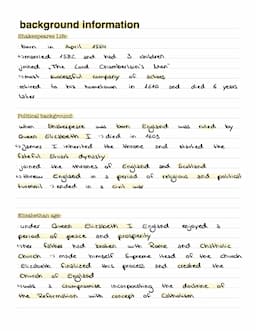 background information
Shakespeares Life:
born in April 1564
↳married 1582 and had 3 children
joined "The Lord Chamberlain's Men"
↳most successful company of actors
retired to his hometown in 1610 and died 6 years
later
Political background:
when Shakespeare was born England was ruled by
Queen Elizabeth I → died in 1603
↳James I inherited the throne and started the
fateful Stuart dynasty
joined the thrones of England and Scotland
↳threw England in a period of religious and political
turmoil → ended in a civil war
Elizabethan age:
under Queen Elizabeth I England enjoyed a
period of peace and prosperity
↳Her father had broken with Rome and Chatholic
Church → made himself Supreme Head of the Church
Elizabeth finalized this process and created the
Church of England
↳was a compromise incorporating the doctrine of
the Reformation with concept of Catholicism